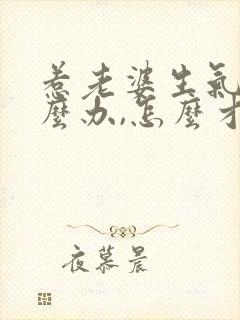 惹老婆生氣
麼办,怎麼才
夜慕晨